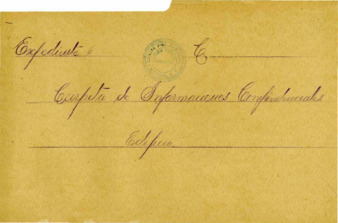 Expediente
C
Carpeta de Informaciones Confidenciales